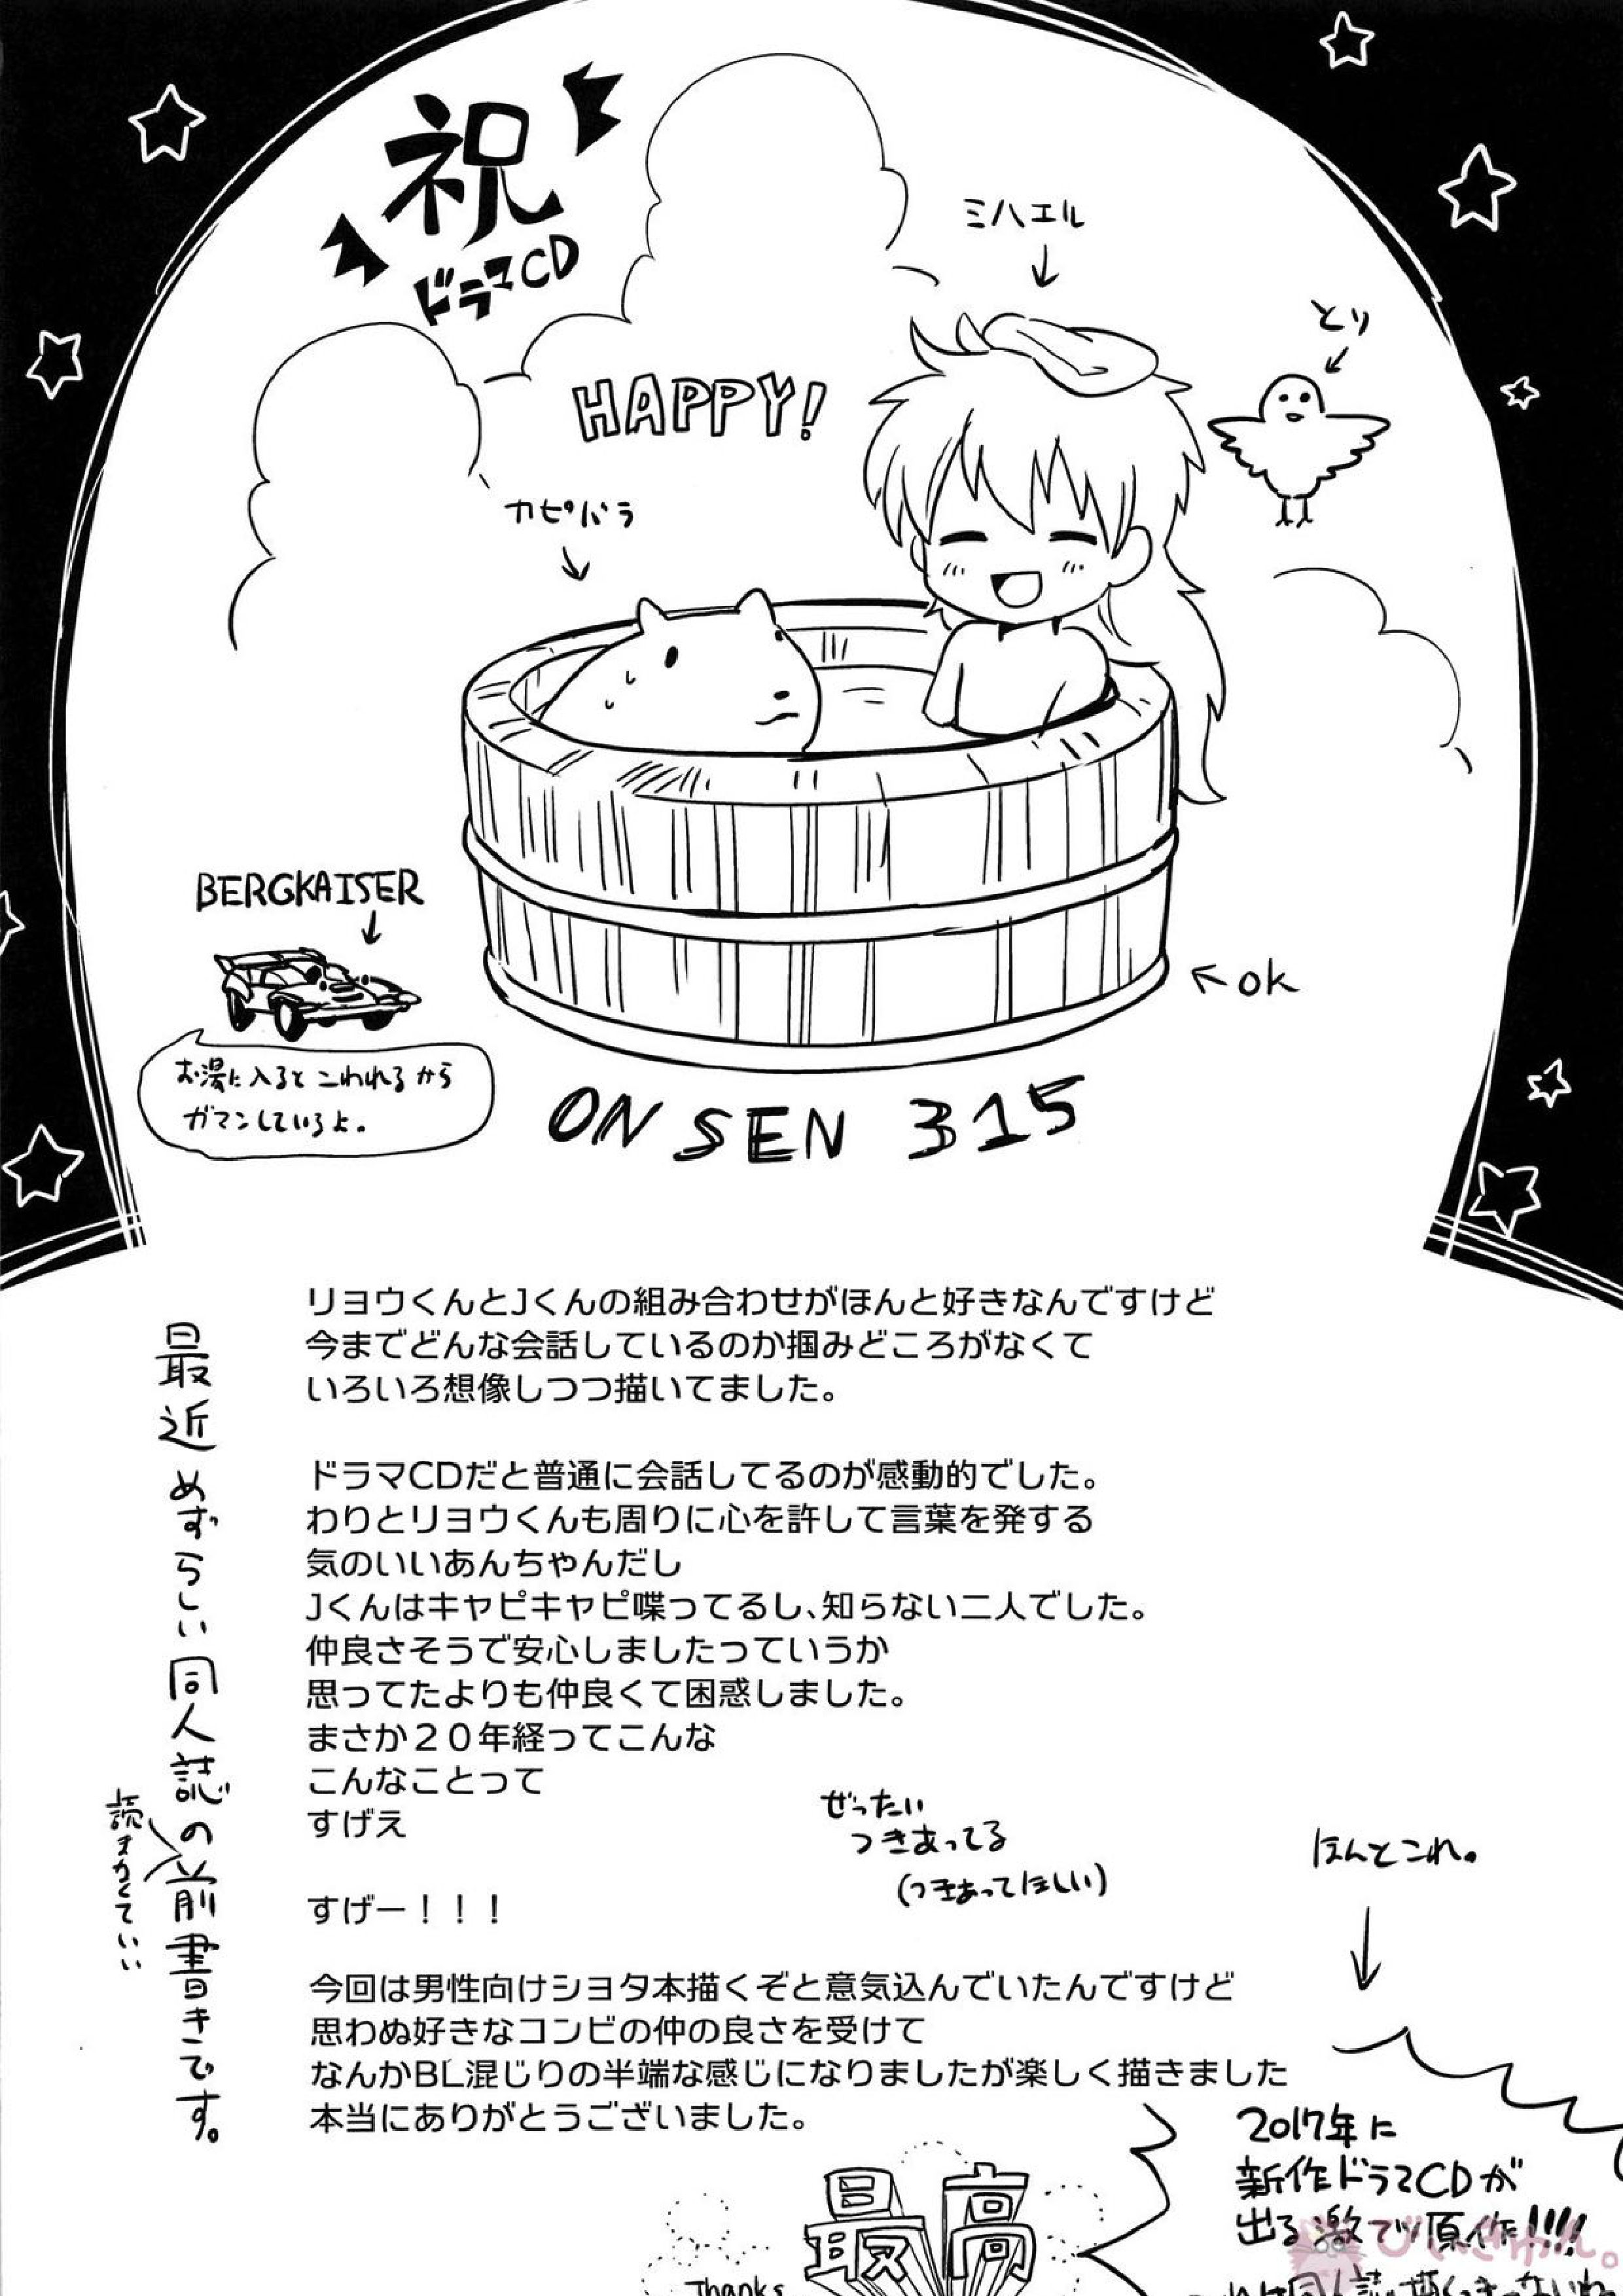 祝
ドラマCD
ミハエル
とり
HAPPY!
カピバラ
BERGKAISER
お湯に入るとこわれるから
ガマンしているよ。
←OK
ONSEN 315
最近めずらしい同人誌の前書きです。
読まなくていい
リョウくんとJくんの組み合わせがほんと好きなんですけど
今までどんな会話しているのか掴みどころがなくて
いろいろ想像しつつ描いてました。
ドラマCDだと普通に会話してるのが感動的でした。
わりとリョウくんも周りに心を許して言葉を発する
気のいいあんちゃんだし
Jくんはキャピキャピ喋ってるし、知らない二人でした。
仲良さそうで安心しましたっていうか
思ってたよりも仲良くて困惑しました。
まさか20年経ってこんな
こんなことって
すげえ
ぜったい
つきあってる
(つきあってほしい)
ほんとこれ。
すげー!!!
今回は男性向けショタ本描くぞと意気込んでいたんですけど
思わぬ好きなコンビの仲の良さを受けて
なんかBL混じりの半端な感じになりましたが楽しく描きました
本当にありがとうございました。
2017年に
新作ドラマCDが
出る激アツ原作!!!!
最高
Thanks